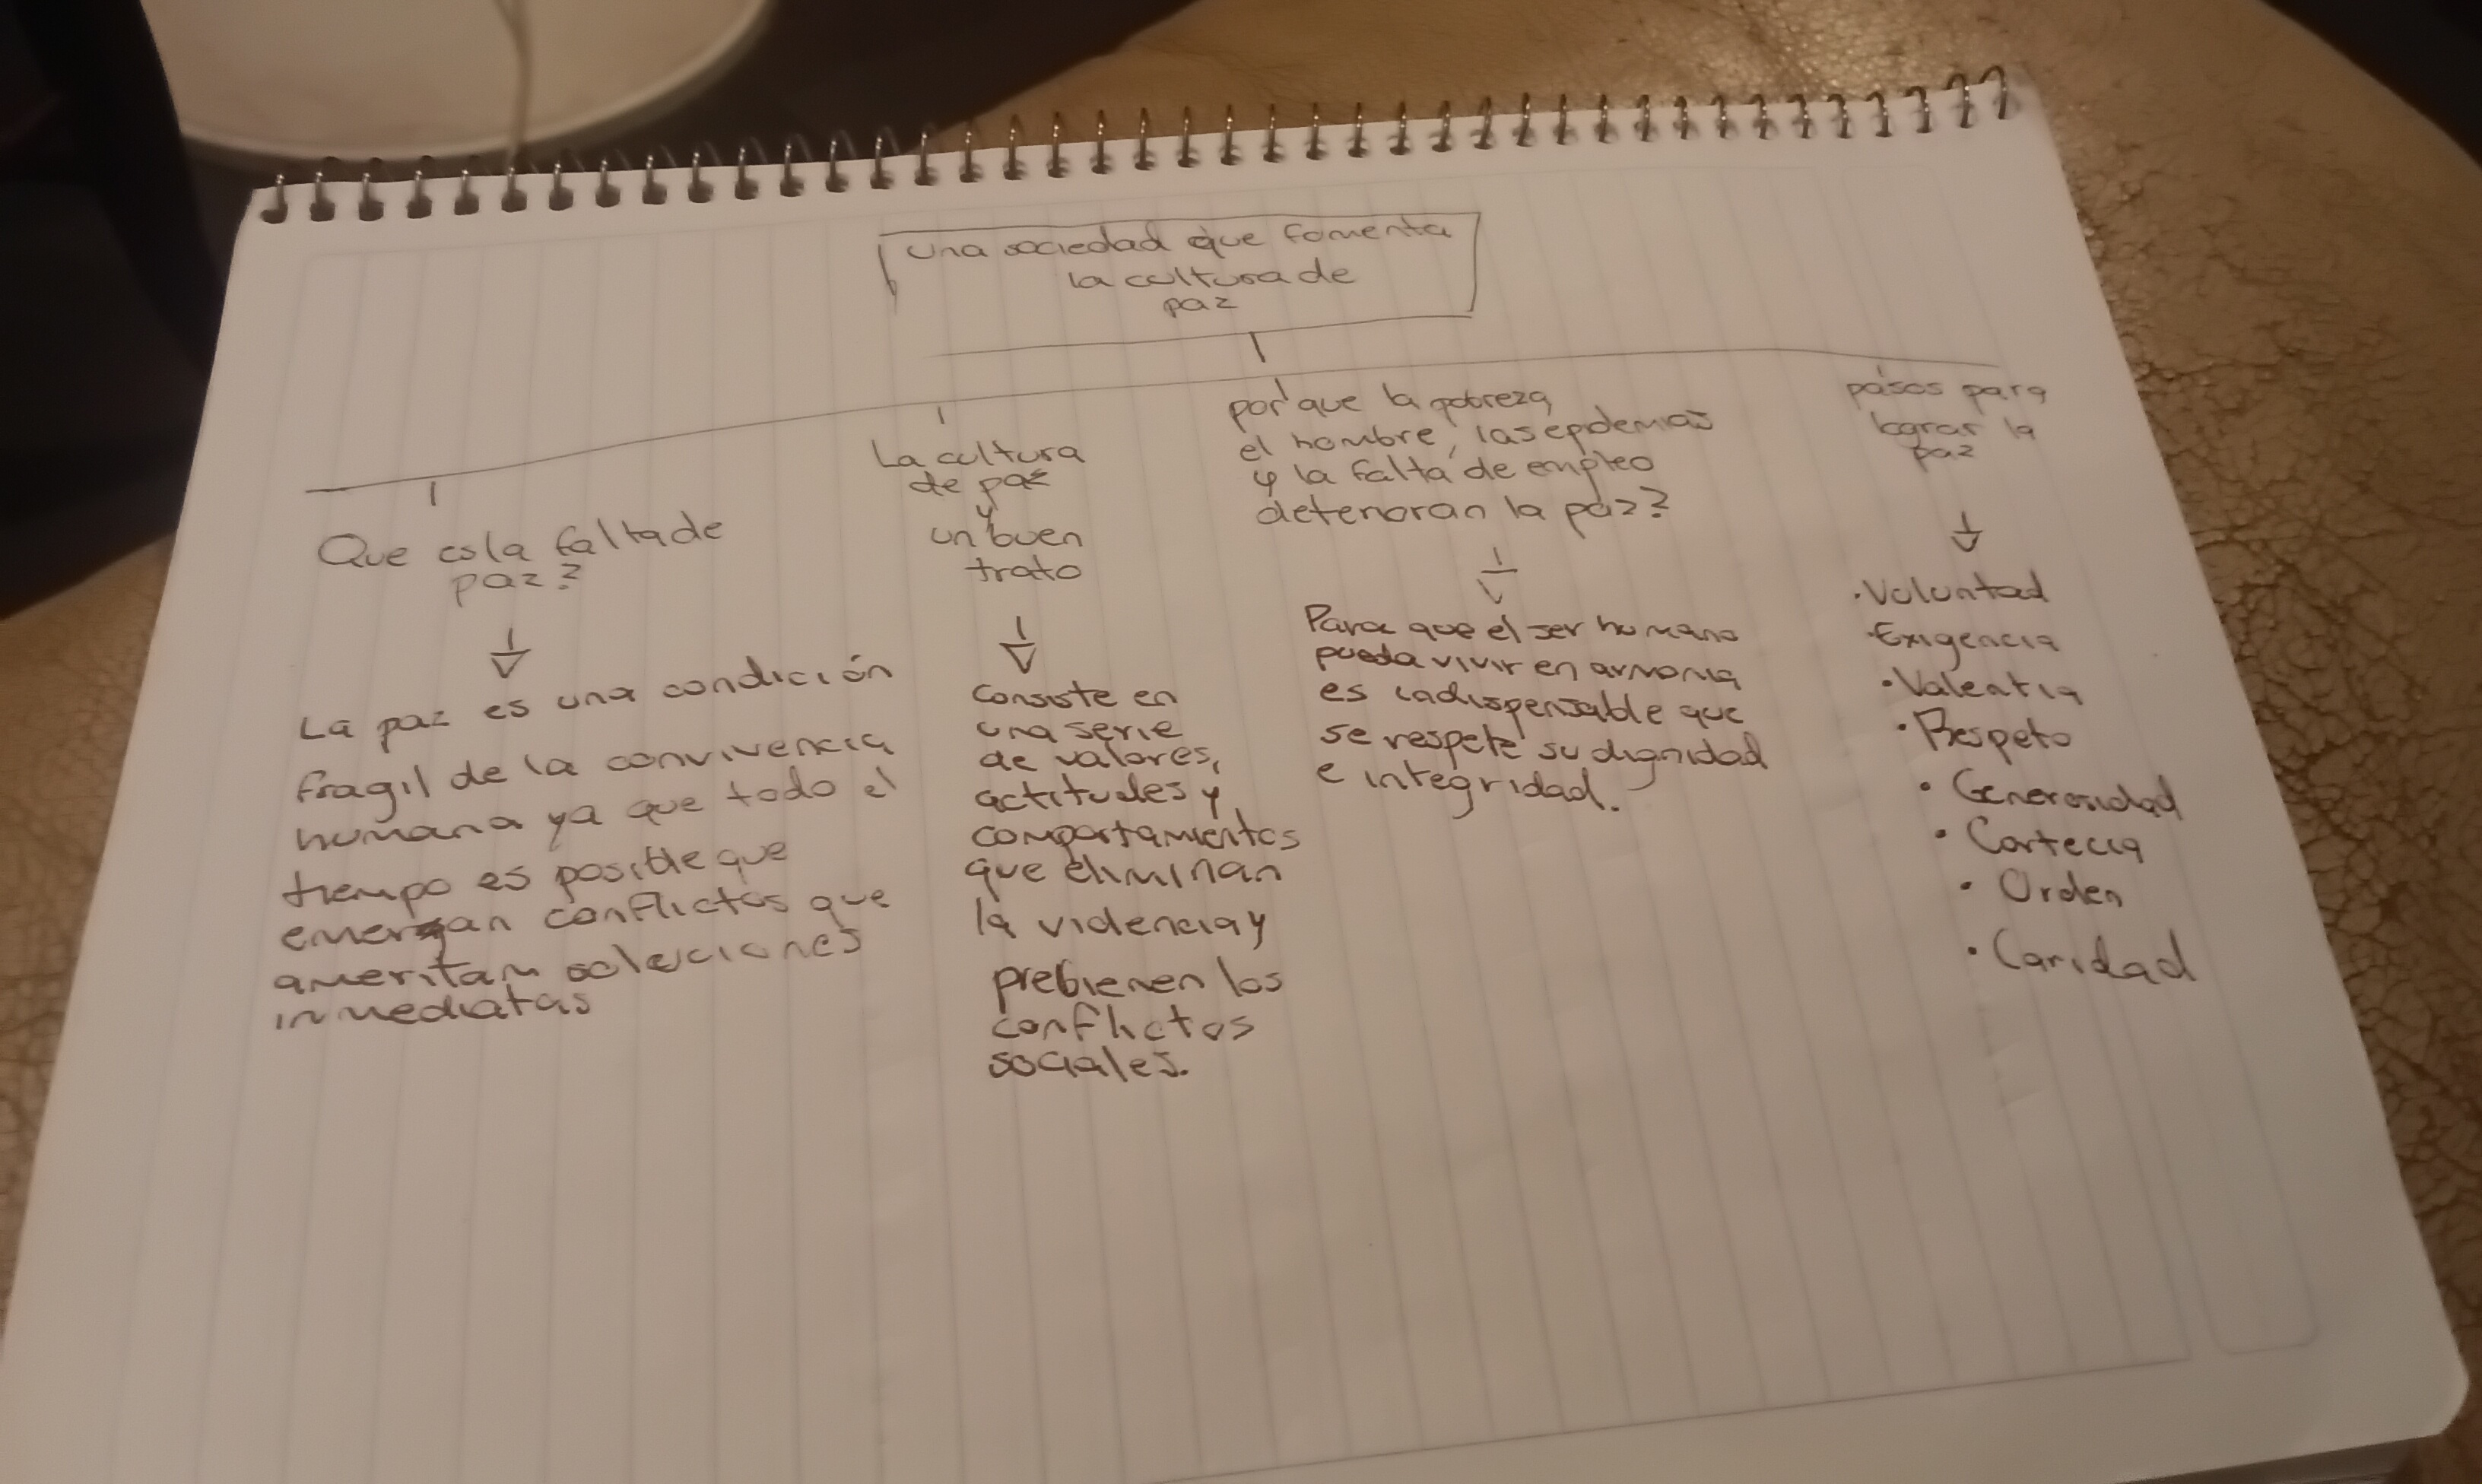 una sociedad que fomenta
la cultura de
paz
Que es la falta de
paz?
La paz es una condición
fragil de la convivencia
humana ya que todo el
tiempo es posible que
emergan conflictos que
ameritan soluciones
inmediatas
La cultura
de paz
y
un buen
trato
Consiste en
una serie
de valores,
actitudes y
comportamientos
que eliminan
la videncia y
prebienen los
conflictos
sociales.
por que la pobreza
el hombre, las epidemias
y la falta de empleo
deterioran la paz?
Para que el ser humano
pueda vivir en armonia
es indispensable que
se respete su dignidad
e integridad.
pasos para
lograr la
paz
• Voluntad
• Exigencia
• Valentia
• Respeto
• Generosidad
• Cortecia
• Orden
• Caridad